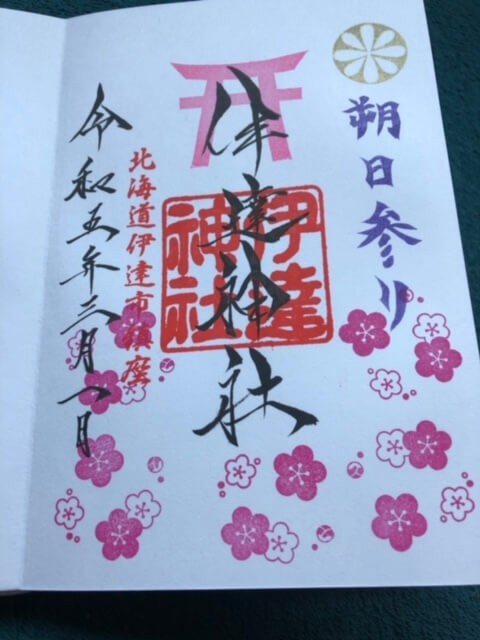 朔日参り
伊達神社
伊達神社
北海道伊達市鎮座
令和五年三月一日